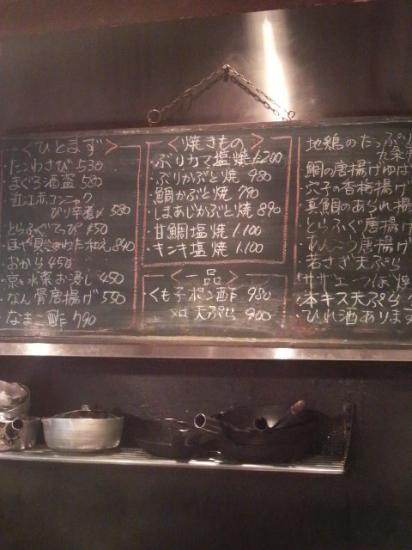 <ひとまず>
・たこわさび 530
・まぐろ酒盗 580
ピリ辛煮 580
・とらふぐてっぴ
・ほや 840
・おから 450
・京水菜お浸し 450
・なん骨唐揚げ 550
・なまこ酢 790
<焼きもの>
・ぶりカマ塩焼 1200
・ぶりかぶと焼 980
・鯛かぶと焼 790
・しまあじかぶと焼 890
・甘鯛塩焼 1.100
・キンキ塩焼 1.100
<一品>
くも子ポン酢 980
天ぷら 900
地鶏のたっぷり
九条
・鯛の唐揚げゆば
・穴子の香梅揚げ
・真鯛のあられ揚
・とらふぐ唐揚
・あんこう唐揚げ
・若さぎ天ぷら
・サザエつぼ焼
・本キス天ぷら
・ひれ酒あります